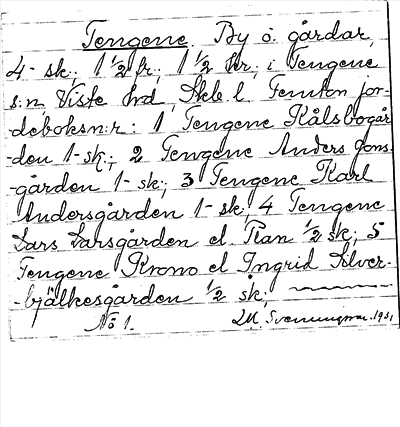 Tengene. By o. gårdar,
4- sk; 1 1/2 fr; 1 1/2 kr; i Tengene
s:n Viste hrd, Skbl. Femton jor-
-deboksn:r: 1 Tengene Kålsbogår
-den 1-sk; 2 Tengene Anders Jons
-gården 1-sk; 3 Tengene Karl
Andersgården 1-sk; 4 Tengene
Lars Larsgården el. Plan 1/2 sk; 5
Tengene Krono el Ingrid Silver-
-bjälkesgården 1/2 sk;
No 1. 1931